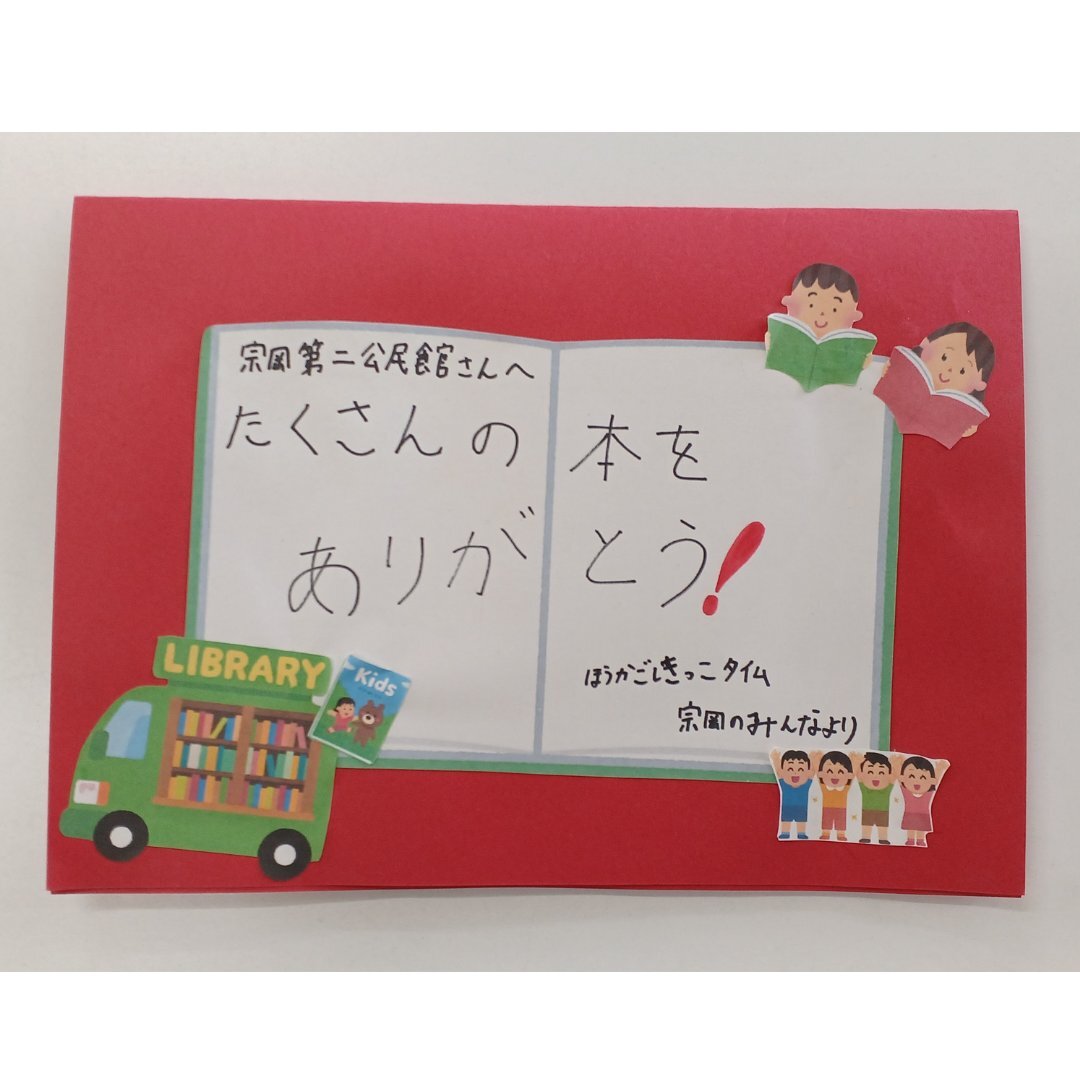 宗岡第二公民館さんへ
たくさんの本を
ありがとう!
ほうかごしきっこタイム
宗岡のみんなより
LIBRARY
Kids